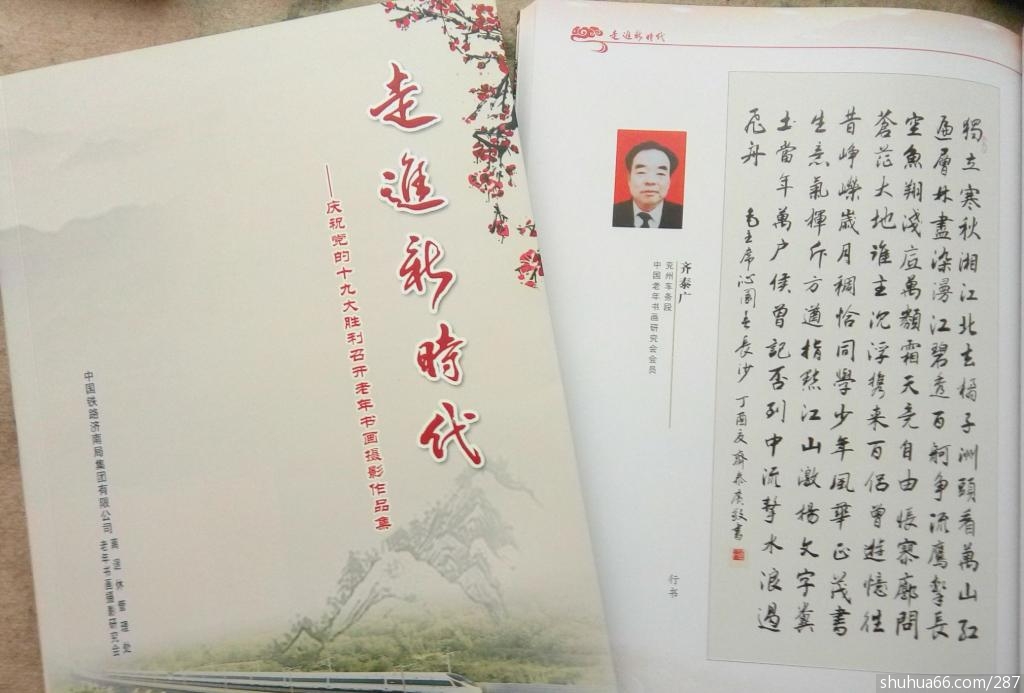 走進新時代
——庆祝党的十九大胜利召开老年书画摄影作品集
中国铁路济南局集团有限公司
离退休管理处
老年书画摄影研究会
走進新時代
齐泰广
兖州车务段
中国老年书画研究会会员
行书
獨立寒秋湘江北去橘子洲頭看萬山红
遍層林盡染漫江碧透百舸争流鹰擊長
空魚翔淺底萬類霜天竞自由悵寥廓問
蒼茫大地誰主沉浮携来百侣曾遊憶往
昔峥嶸歲月稠恰同學少年風華正茂書
生意氣揮斥方遒指點江山激揚文字糞
土當年萬户侯曾記否到中流擊水浪遏
飛舟
毛主席沁園春長沙 丁酉夏齊泰廣敬書
shuhua66.com/287